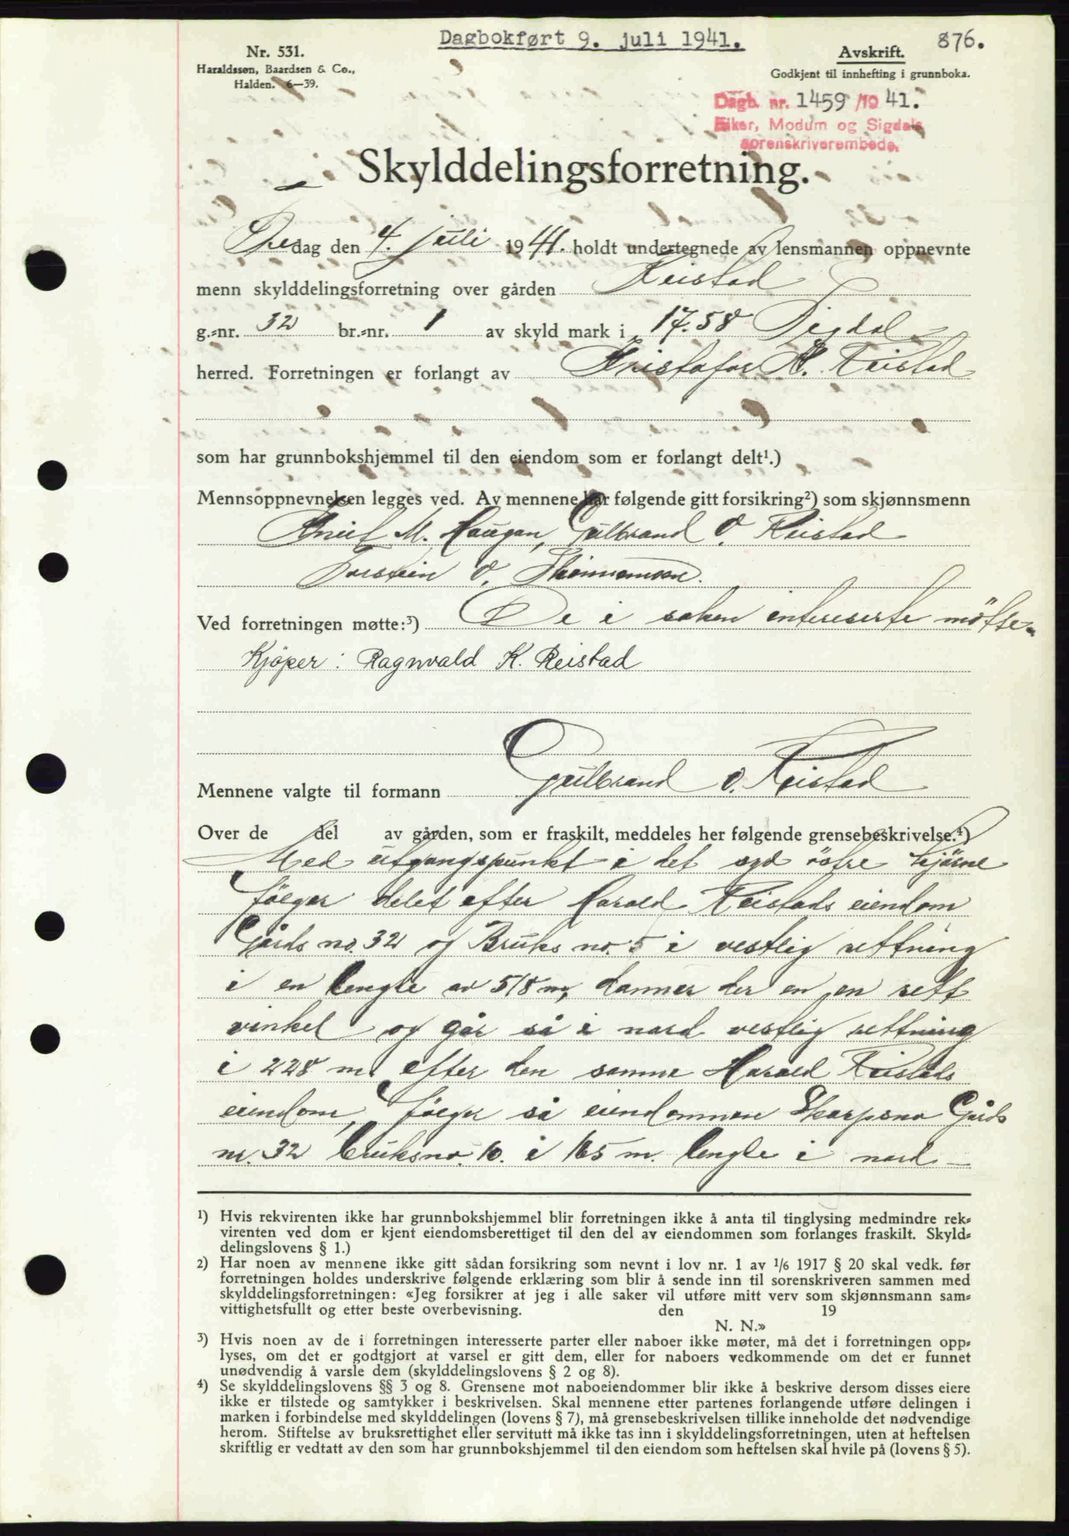 Dagbokført 9. juli 1941.
876.
Nr. 531.
Haraldssøn, Baardsen & Co.,
Halden. 6—39.
Avskrift.
Godkjent til innhefting i grunnboka.
Dagb. nr. 1459 /19 41.
Eiker, Modum og Sigdals
sorenskriverembede.
Skylddelingsforretning.
Fredag den 4. juli 1941. holdt undertegnede av lensmannen oppnevnte
menn skylddelingsforretning over gården Reistad
g.-nr. 32 br.-nr. 1 av skyld mark i 17.58 Sigdal
herred. Forretningen er forlangt av Kristofer H. Reistad
som har grunnbokshjemmel til den eiendom som er forlangt delt¹.)
Mennsoppnevnelsen legges ved. Av mennene har følgende gitt forsikring²) som skjønnsmenn
M. Haugan, Gulbrand O. Reistad
Torstein O.
Ved forretningen møtte:³) De i saken intereserte møtte.
Kjøper: Ragnvald K. Reistad
Mennene valgte til formann Gulbrand O. Reistad
Over de del av gården, som er fraskilt, meddeles her følgende grensebeskrivelse.⁴)
Med utgangspunkt i det syd østre hjørne
følger delet efter Harald Reistads eiendom
Gårds no. 32 og Bruks no. 5 i vestlig rettning
i en lengle av 518 m, danner der en en rett
vinkel og går så i nord vestlig rettning
i 228 m. efter den samme Harald Reistads
eiendom, følger så eiendommen Skarpsno Gårds
nr. 32 bruksno. 10. i 165 m. lengle i nord-
¹) Hvis rekvirenten ikke har grunnbokshjemmel blir forretningen ikke å anta til tinglysing medmindre rek-
virenten ved dom er kjent eiendomsberettiget til den del av eiendommen som forlanges fraskilt. Skyld-
delingslovens § 1.)
²) Har noen av mennene ikke gitt sådan forsikring som nevnt i lov nr. 1 av ¹/₆ 1917 § 20 skal vedk. før
forretningen holdes underskrive følgende erklæring som blir å sende inn til sorenskriveren sammen med
skylddelingsforretningen: «Jeg forsikrer at jeg i alle saker vil utføre mitt verv som skjønnsmann sam-
vittighetsfullt og etter beste overbevisning. den 19
N. N.»
³) Hvis noen av de i forretningen interesserte parter eller naboer ikke møter, må det i forretningen opp-
lyses, om det er godtgjort at varsel er gitt dem, eller for naboers vedkommende om det er funnet
unødvendig å varsle dem (skylddelingslovens § 2 og 8).
⁴) Se skylddelingslovens §§ 3 og 8. Grensene mot naboeiendommer blir ikke å beskrive dersom disses eiere
ikke er tilstede og samtykker i beskrivelsen. Skal mennene etter partenes forlangende utføre delingen i
marken i forbindelse med skylddelingen (lovens § 7), må grensebeskrivelsen tillike inneholde det nødvendige
herom. Stiftelse av bruksrettighet eller servitutt må ikke tas inn i skylddelingsforretningen, uten at heftelsen
skriftlig er vedtatt av den som har grunnbokshjemmel til den eiendom som heftelsen skal hvile på (lovens § 5).